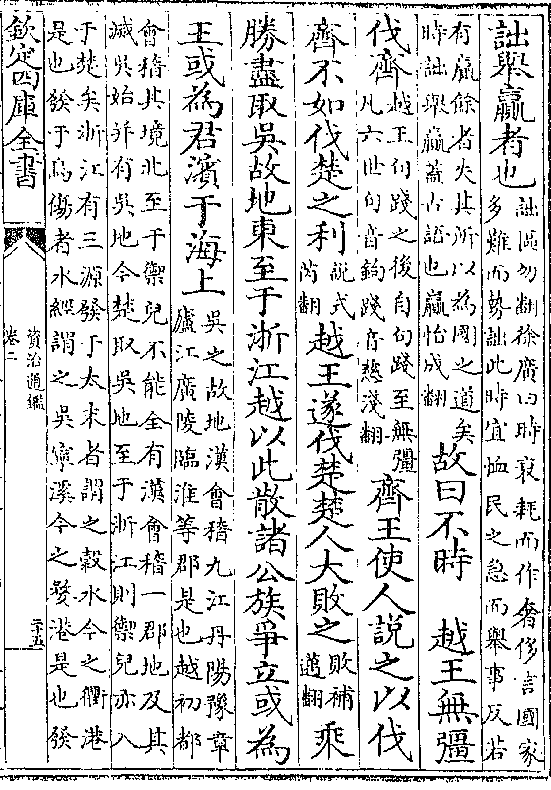 詘舉贏者也詘區勿翻徐廣曰時衰耗而作奢侈言國家
多難而勢詘此時宜恤民之急而舉事反若
有贏餘者失其所以為國之道矣
時詘舉贏蓋古語也贏怡成翻故曰不時　越王無彊
伐齊越王句踐之後自句踐至無彊
凡六世句音鉤踐音慈淺翻齊王使人說之以伐
齊不如伐楚之利說式
芮翻越王遂伐楚楚人大敗之敗補
邁翻乘
勝盡取吳故地東至于浙江越以此散諸公族爭立或為
王或為君濱于海上吳之故地漢會稽九江丹陽豫章
廬江廣陵臨淮等郡是也越初都
會稽其境北至于禦兒不能全有漢會稽一郡地及其
滅吳始并有吳地今楚取吳地至于浙江則禦兒亦入
于楚矣浙江有三源發于太末者謂之穀水今之衢港
是也發于烏傷者水經謂之吳寧溪今之婺港是也發
欽定四庫全書
資治通鑑
卷二
二十五